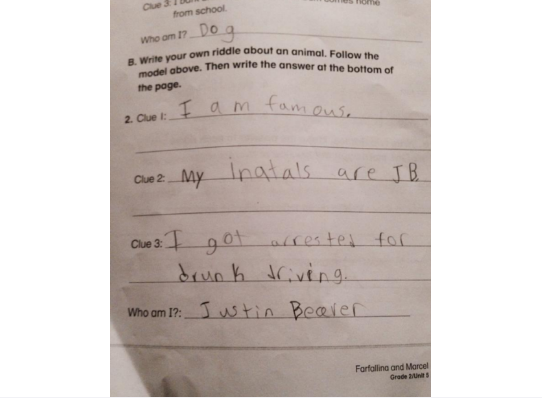 Clue 3: I
home
from school.
Who am I? Dog
B. Write your own riddle about an animal. Follow the
model above. Then write the answer at the bottom of
the page.
2. Clue 1: I am famous.
Clue 2: My Inatals are JB
Clue 3: I got arrested for
drunk driving.
Who am I?: Justin Beaver
Farfallina and Marcel
Grade 2/Unit 5